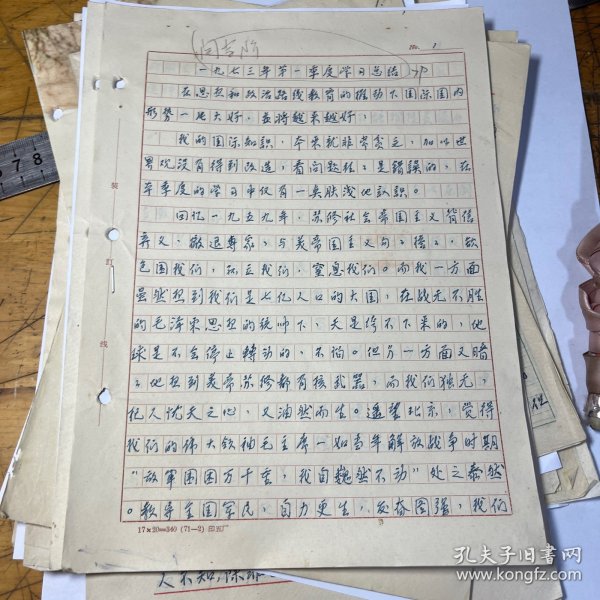 No. 1
一九七三年第一季度学习总结
在思想和政治路线教育的推动下国际国内
形势一片大好，且将越来越好，
我的国际知识，本来就非常贫乏，加以世
界观没有得到改造，看问题往往是错误的，在
本季度的学习中仅有一点肤浅地认识。
回忆一九五九年，苏修社会帝国主义背信
弃义，撤退专家，与美帝国主义勾勾搭搭，
包围我们，孤立我们，窒息我们。而我一方面
虽然想到我们是七亿人口的大国，在战无不胜
的毛泽东思想的统帅下，天是垮不下来的，地
球是不会停止转动的，不怕。但另一方面又暗
暗地想到美帝苏修都有核武器，而我们独无，
杞人忧天之心，又油然而生。遥望北京，觉得
我们的伟大领袖毛主席一如当年解放战争时期
"敌军围困万千重，我自巍然不动"处之泰然
。领导全国军民，自力更生，发奋图强，我们
装
订
线
17×20=340 (71—2) 印五厂
人不知，
7 8
孔夫子旧书网
www.kongfz.com